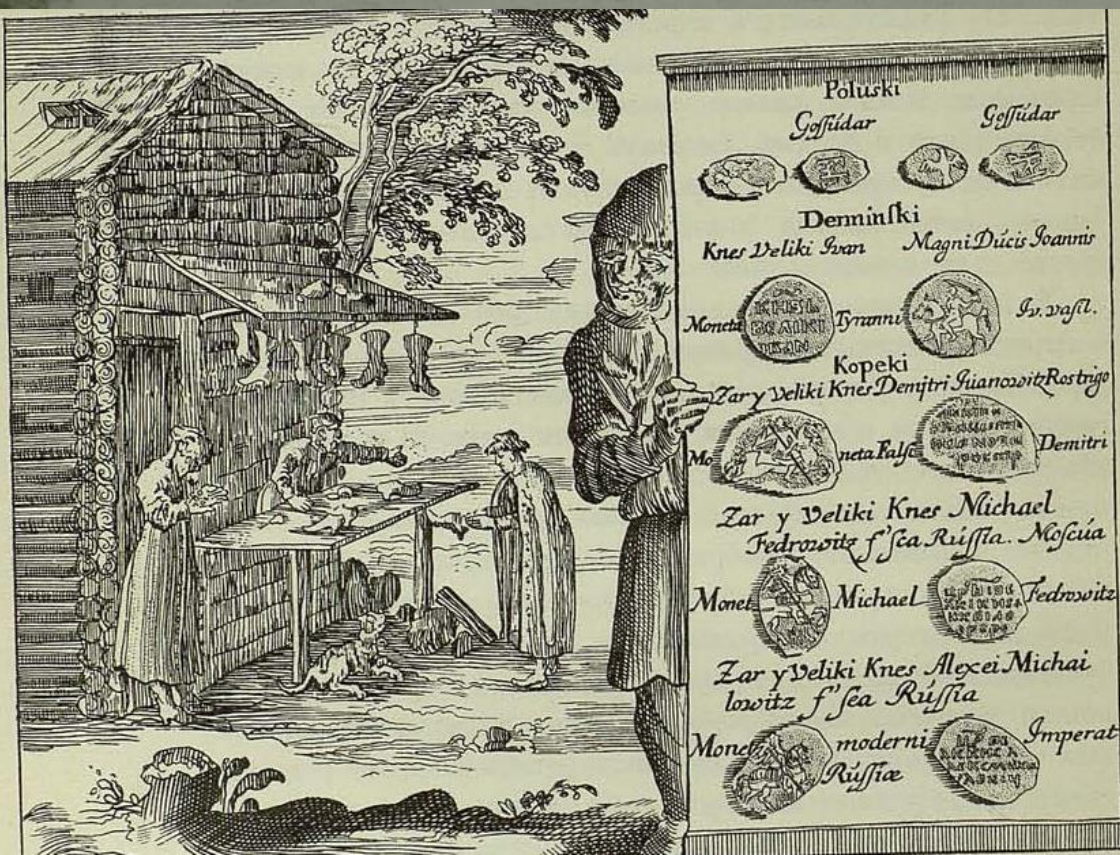 Poluski
Gossúdar Gossúdar
Derminski
Knes Veliki Ivan Magni Dúcis Joannis
Moneta Tyranni Iv. vasil.
КНѦЗЬ
ВЕЛІКІ
ІВАН
Kopeki
Zar y Veliki Knes Demitri Iuanowitz Rostrigo
Mo neta Fals Demitri
Zar y Veliki Knes Michael
Fedrowitz f'sca Rússia. Moscúa
Monet Michael Fedrowitz
Zar y Veliki Knes Alexei Michai
lowitz f'sea Rússia
Monet moderni Imperat
Rússiæ